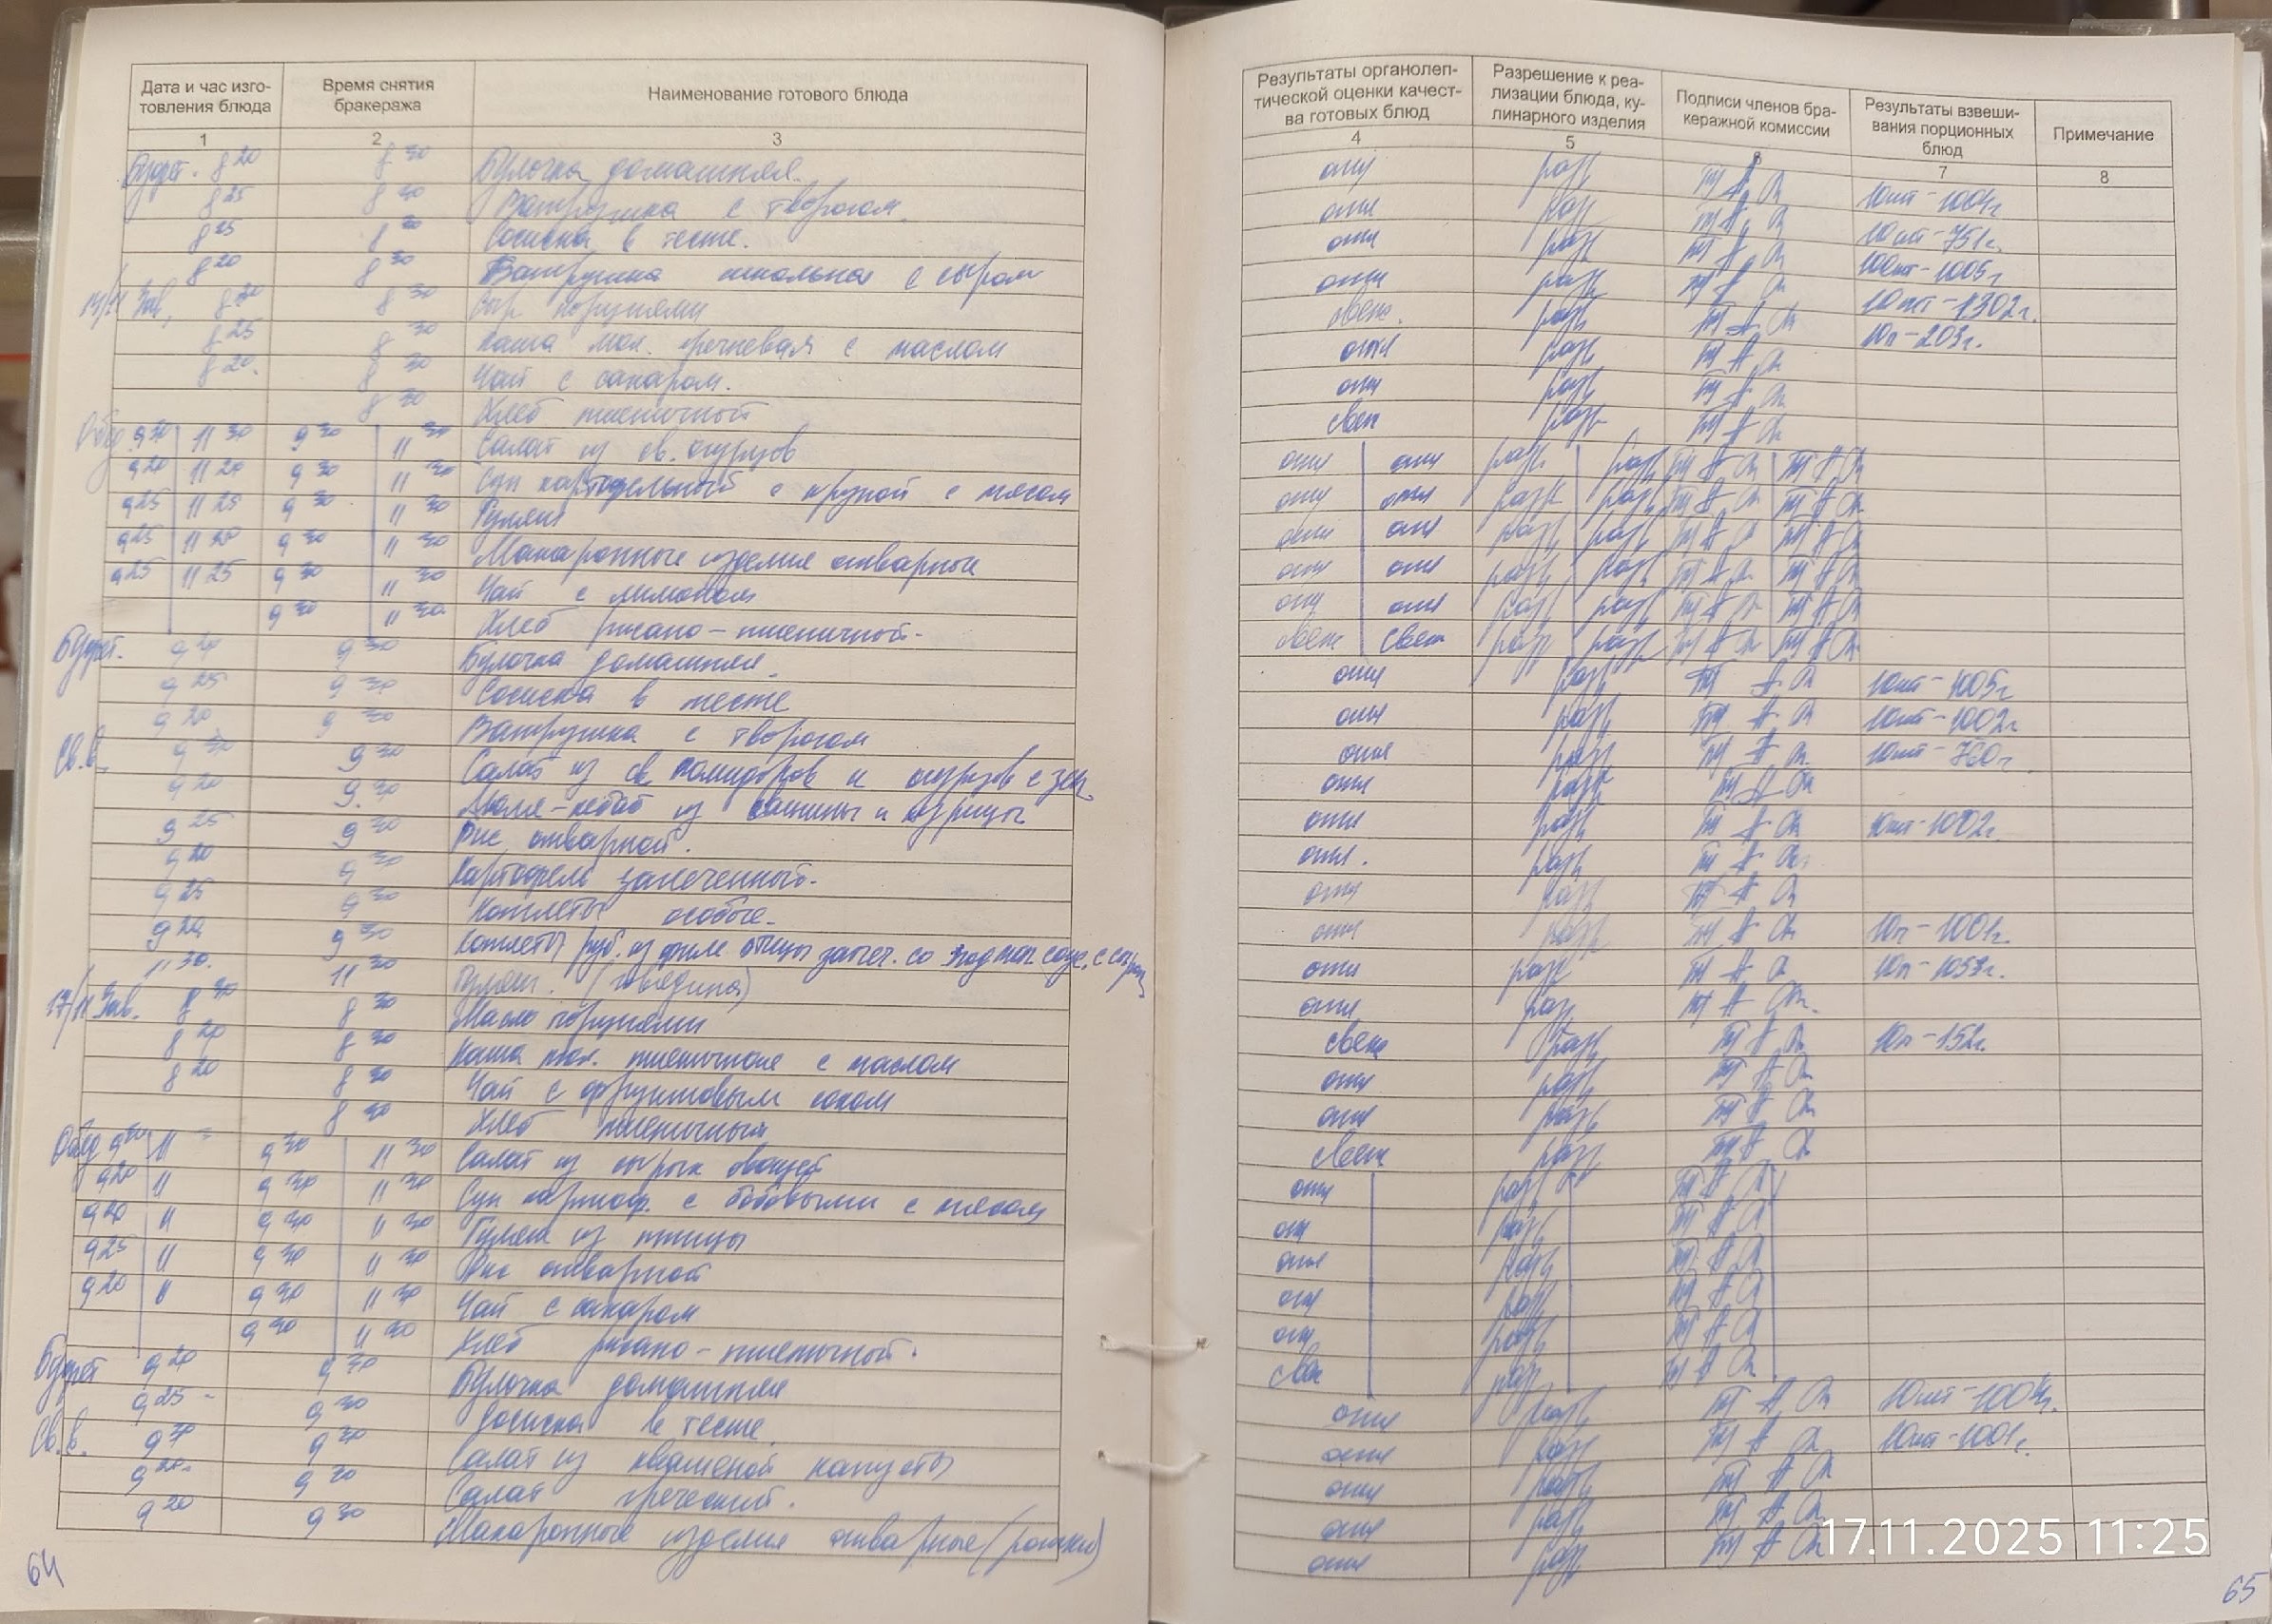 Дата и час изготовления блюда | Время снятия бракеража | Наименование готового блюда | Результаты органолептической оценки качества готовых блюд | Разрешение к реализации блюда, кулинарного изделия | Подписи членов бракеражной комиссии | Результаты взвешивания порционных блюд | Примечание
1 | 2 | 3 | 4 | 5 | 6 | 7 | 8
Буфет. 8 20 | 8 30 | Булочка домашняя. | отл | разр | | 10шт - 1004г
8 25 | 8 30 | Ватрушка с творогом. | отл | разр | | 10шт - 751г.
8 25 | 8 30 | Сосиска в тесте. | отл | разр | | 10шт - 1005г
8 20 | 8 30 | Ватрушка школьная с сыром | отл | разр | | 10шт - 1302г.
Зав. 8 20 | 8 30 | Сыр порциями | свеж. | разр | | 10п - 203г.
8 25 | 8 30 | Каша мол. гречневая с маслом | отл | разр
8 20. | 8 30 | Чай с сахаром. | отл | разр
8 30 | Хлеб пшеничный | свеж | разр
Обед 9 20 | 11 30 | 9 30 | 11 30 | Салат из св. огурцов | отл | отл | разр | разр
9 20 | 11 20 | 9 30 | 11 30 | Суп картофельный с крупой с мясом | отл | отл | разр | разр
9 25 | 11 25 | 9 30 | 11 30 | Гуляш | отл | отл | разр | разр
9 25 | 11 20 | 9 30 | 11 30 | Макаронные изделия отварные | отл | отл | разр | разр
9 25 | 11 25 | 9 30 | 11 30 | Чай с лимоном | отл | отл | разр | разр
9 30 | 11 30 | Хлеб ржано-пшеничный. | свеж | свеж | разр | разр
Буфет. 9 20 | 9 30 | Булочка домашняя. | отл | разр | | 10шт - 1005г
9 25 | 9 30 | Сосиска в тесте | отл | разр | | 10шт - 1002г
9 20 | 9 30 | Ватрушка с творогом | отл | разр | | 10шт - 760г
Св.в. 9 20 | 9 30 | Салат из св. помидоров и огурцов с зел. | отл | разр
9 20 | 9.30 | Люля-кебаб из свинины и курицы | отл | разр | | 10шт - 1002г.
9 25 | 9 30 | Рис отварной. | отл. | разр
9 20 | 9 30 | Картофель запеченный. | отл | разр
9 25 | 9 30 | Котлеты особые. | отл | разр | | 10п - 1001г.
9 20 | 9 30 | Котлеты руб. из филе птицы запеч. со сос. с сыром | отл | разр | | 10п - 1053г.
11 30. | 11 30 | Гуляш. (говядина) | отл | разр
17/11 Зав. 8 20 | 8 30 | Масло порциями | свеж | разр | | 10п - 152г.
8 20 | 8 30 | Каша мол. пшеничная с маслом | отл | разр
8 20 | 8 30 | Чай с фруктовым соком | отл | разр
8 30 | Хлеб пшеничный | свеж | разр
Обед 9 20 | 11 | 9 30 | 11 30 | Салат из сырых овощей | отл | разр
9 20 | 11 | 9 30 | 11 30 | Суп картоф. с бобовыми с мясом | отл | разр
9 20 | 11 | 9 30 | 11 30 | Гуляш из птицы | отл | разр
9 25 | 11 | 9 30 | 11 30 | Рис отварной | отл | разр
9 20 | 11 | 9 30 | 11 30 | Чай с сахаром | отл | разр
9 30 | 11 30 | Хлеб ржано-пшеничный. | свеж | разр
Буфет 9 20 | 9 30 | Булочка домашняя | отл | разр
9 25 - | 9 30 | Сосиска в тесте | отл | разр | | 10шт - 1001г.
Св.в. 9 20 | 9 30 | Салат из квашеной капусты | отл | разр
9 20. | 9 30 | Салат греческий. | отл | разр
9 20 | 9 30 | Макаронные изделия отварные (рожки) | отл | разр
64
65
17.11.2025 11:25